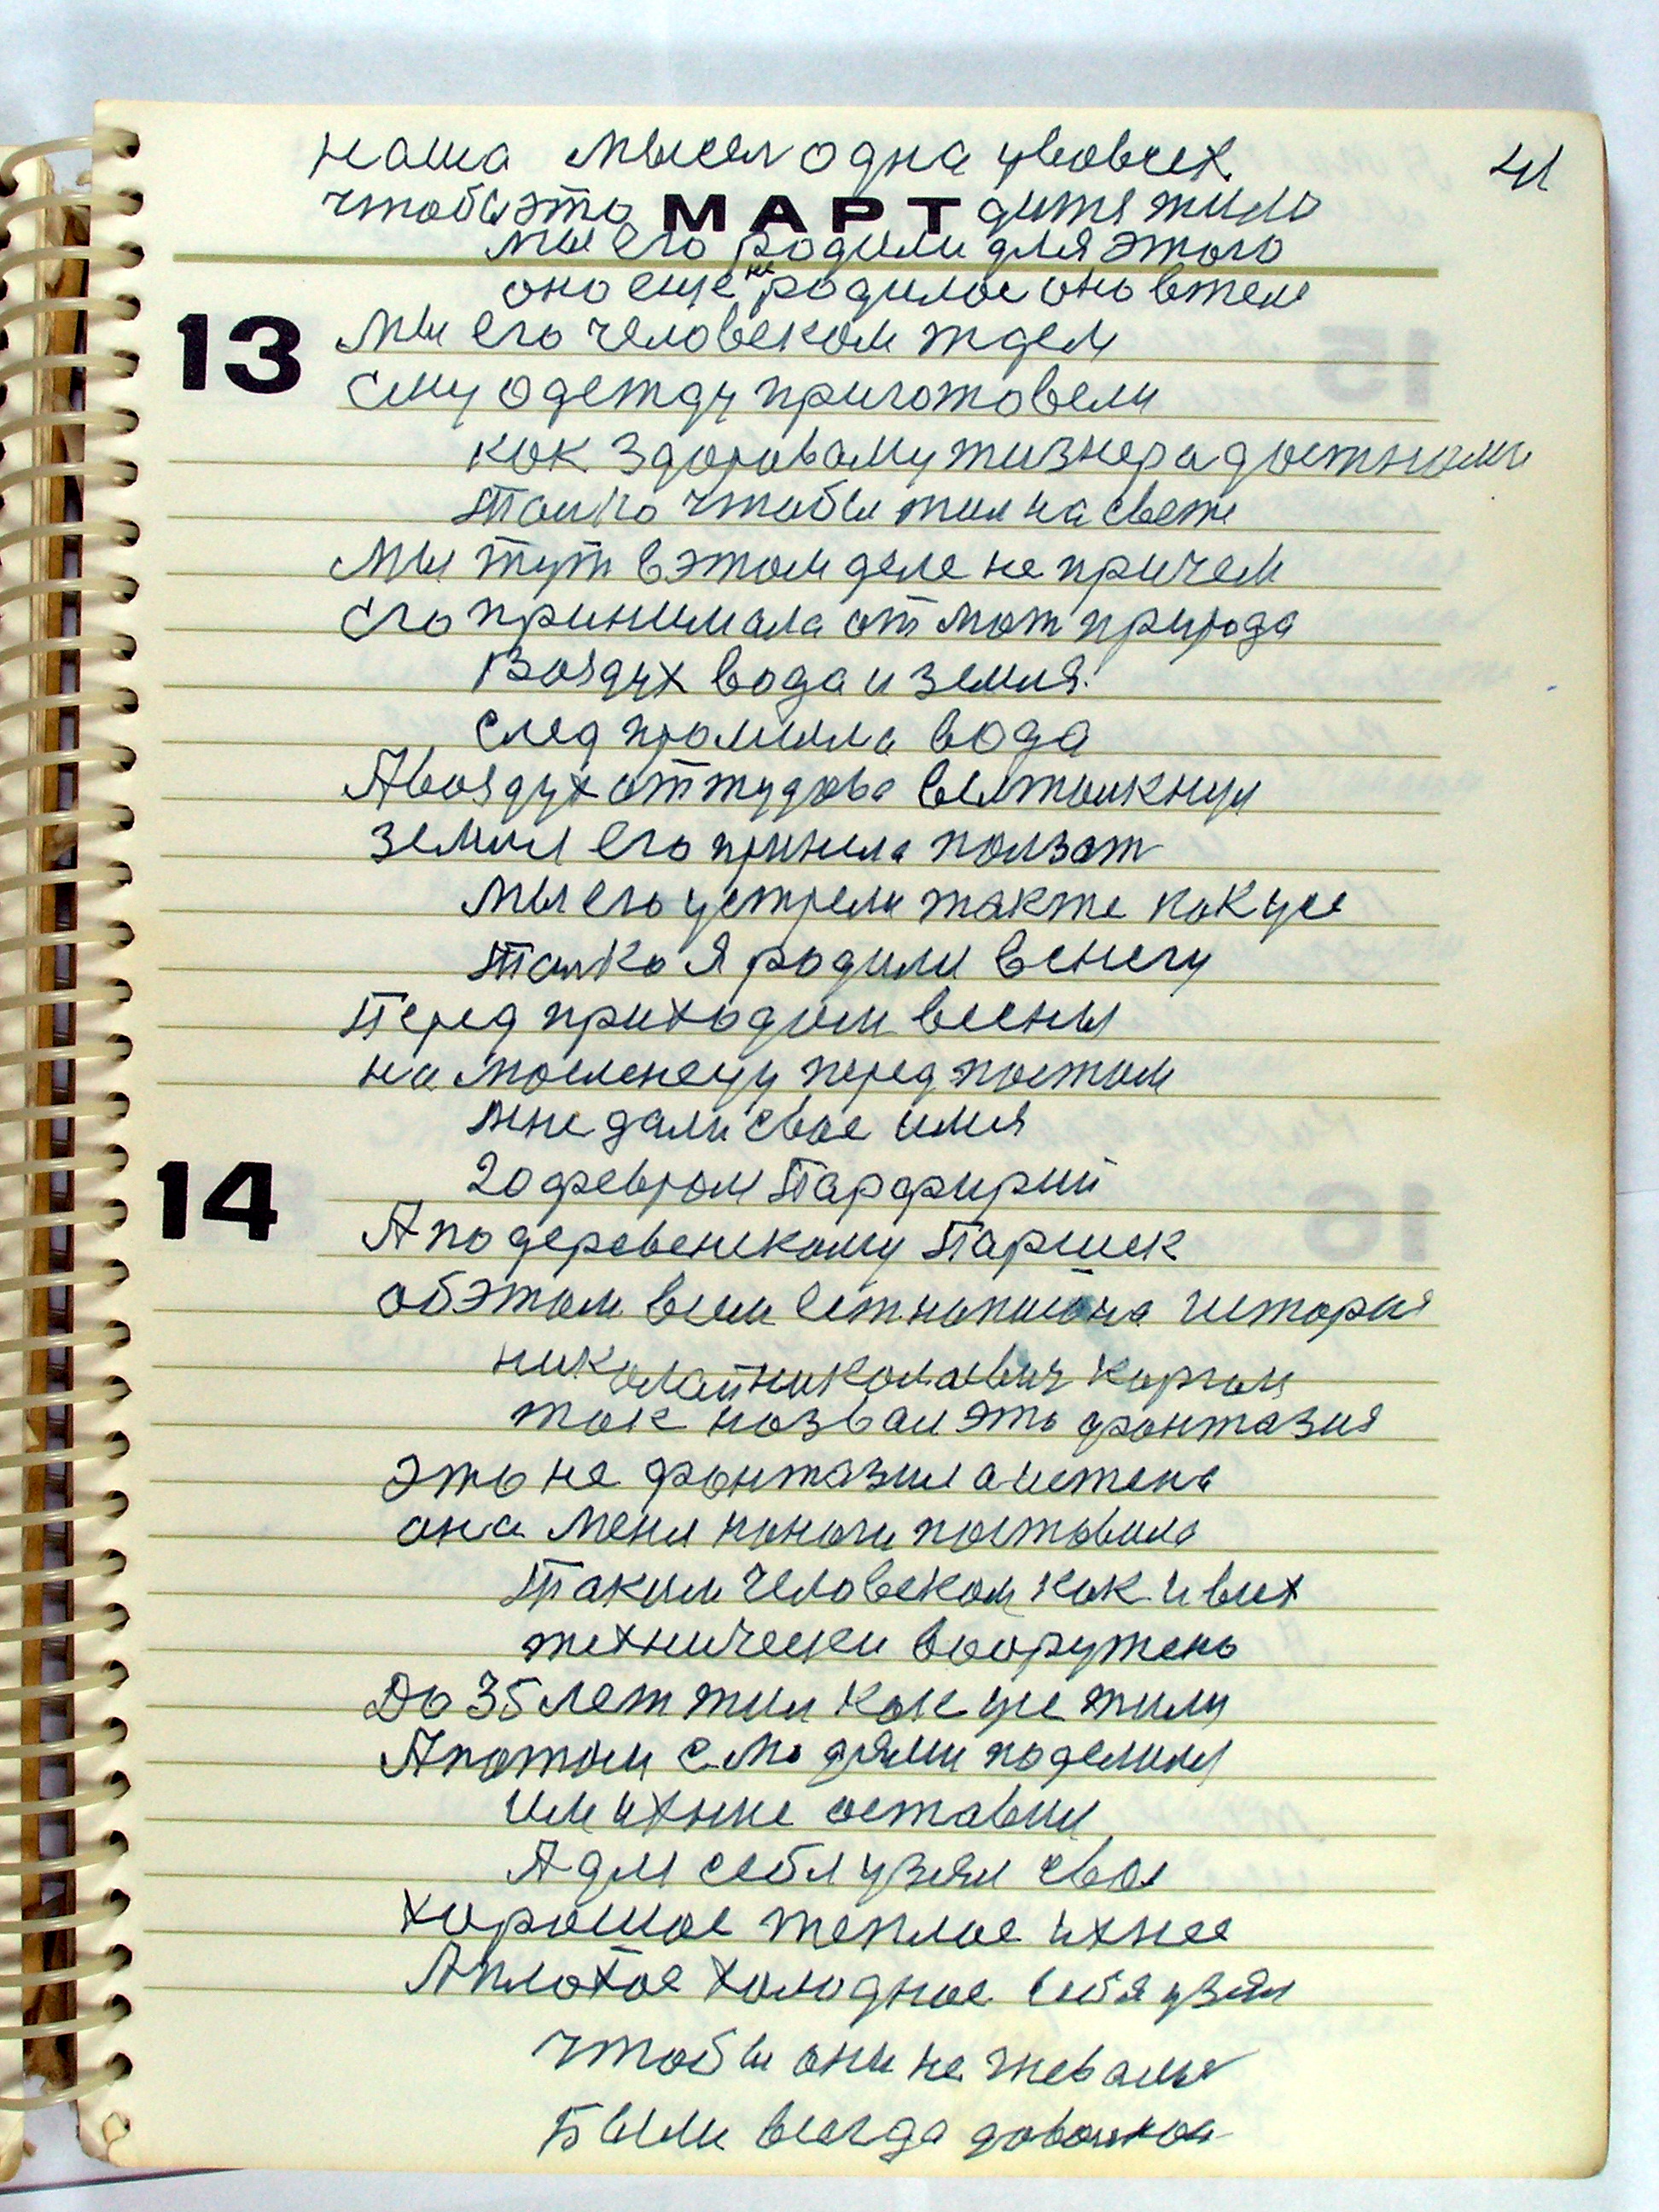 наша мысля одна увовсех
41
чтобы это МАРТ дитя жило
мы его родили для этого
оно еще не родилос оно втеле
13
мы его человеком ждем
ему одежду приготовели
как здоровому жизнерадостному
Толко чтобы жил на свете
мы тут в этом деле не причем
его принимала от мат природа
Воздух вода и земля!
след промыла вода
А воздух оттудова вытолкнул
земля его принела ползат
мы его устрели также как усе
Толко я родили в снегу
Перед приходом весны
на масленецу перед постом
мне дали свое имя
14
20 феврал Парфирий
А по деревенскому Паршек
об этом всем ест написана история
николай николаевич
так назвал это фонтазия
это не фонтазия а истена
она меня наноги поставила
Таким человеком как и всех
технически вооружено
До 35 лет жил как усе жили
А потом с людями поделиля
им ихнее оставил
А для себя узял свое
хорошое теплое ихнее
А плохое холодное себя узял
чтобы они не
Были всегда